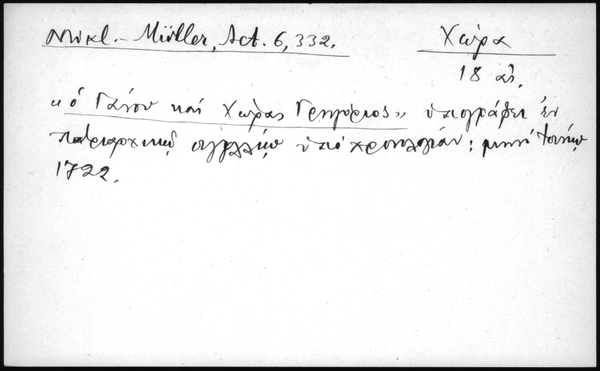 Μικλ.-Müller, Act. 6, 332.
Χώρα
18 αἰ.
«ὁ Γάνου καὶ Χώρας Γρηγόριος» ὑπογράφει ἐν
πατριαρχικῷ σιγιλλίῳ ὑπὸ χρονολογίαν: μηνὶ Ἰουνίῳ
1722.